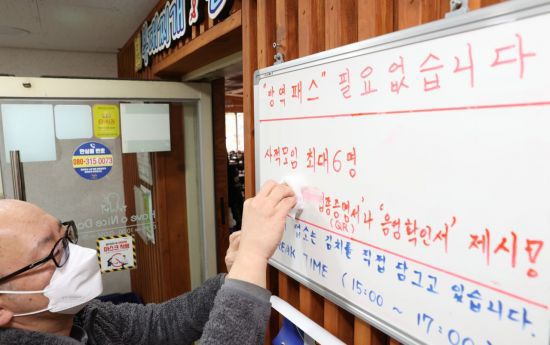 "방역패스" 필요없습니다
사적모임 최대6명
접종증명서'나 '음성확인서' 제시!
(QR)
업소는 김치를 직접 담그고 있습니다.
BREAK TIME (15:00~17:00
안심콜 번호
080-315.0073
Have a Nice Da
마스크 착용